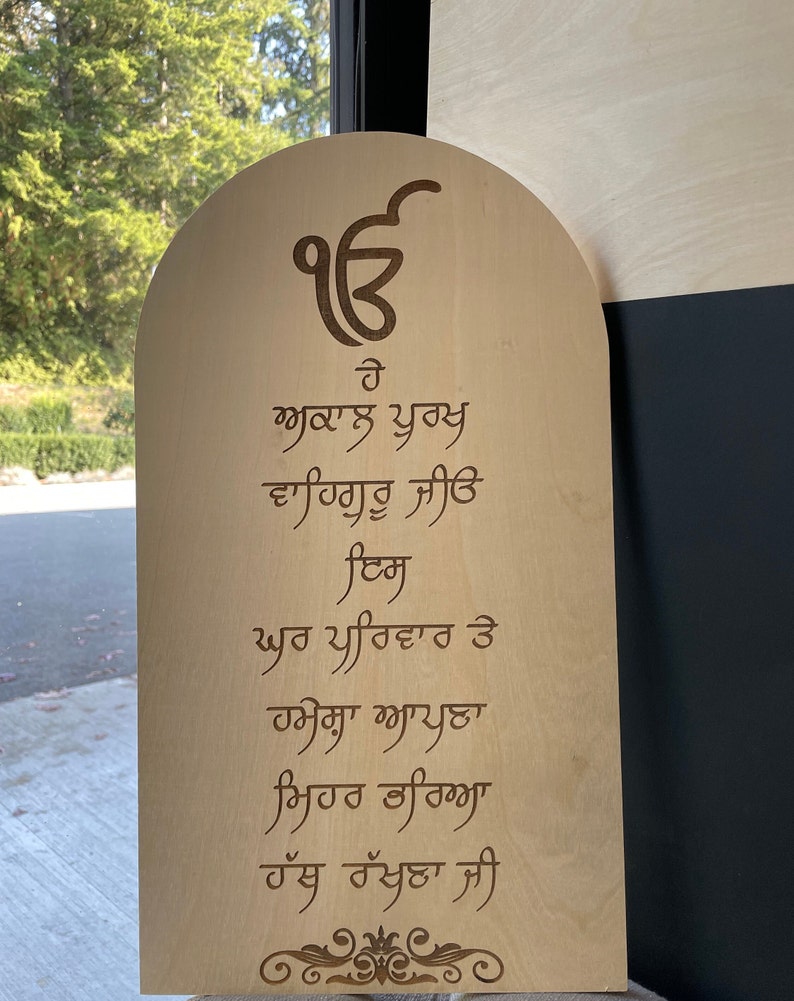 ੴ
ਹੇ
ਅਕਾਲ ਪੁਰਖ
ਵਾਹਿਗੁਰੂ ਜੀਓ
ਇਸ
ਘਰ ਪਰਿਵਾਰ ਤੇ
ਹਮੇਸ਼ਾ ਆਪਣਾ
ਮਿਹਰ ਭਰਿਆ
ਹੱਥ ਰੱਖਣਾ ਜੀ